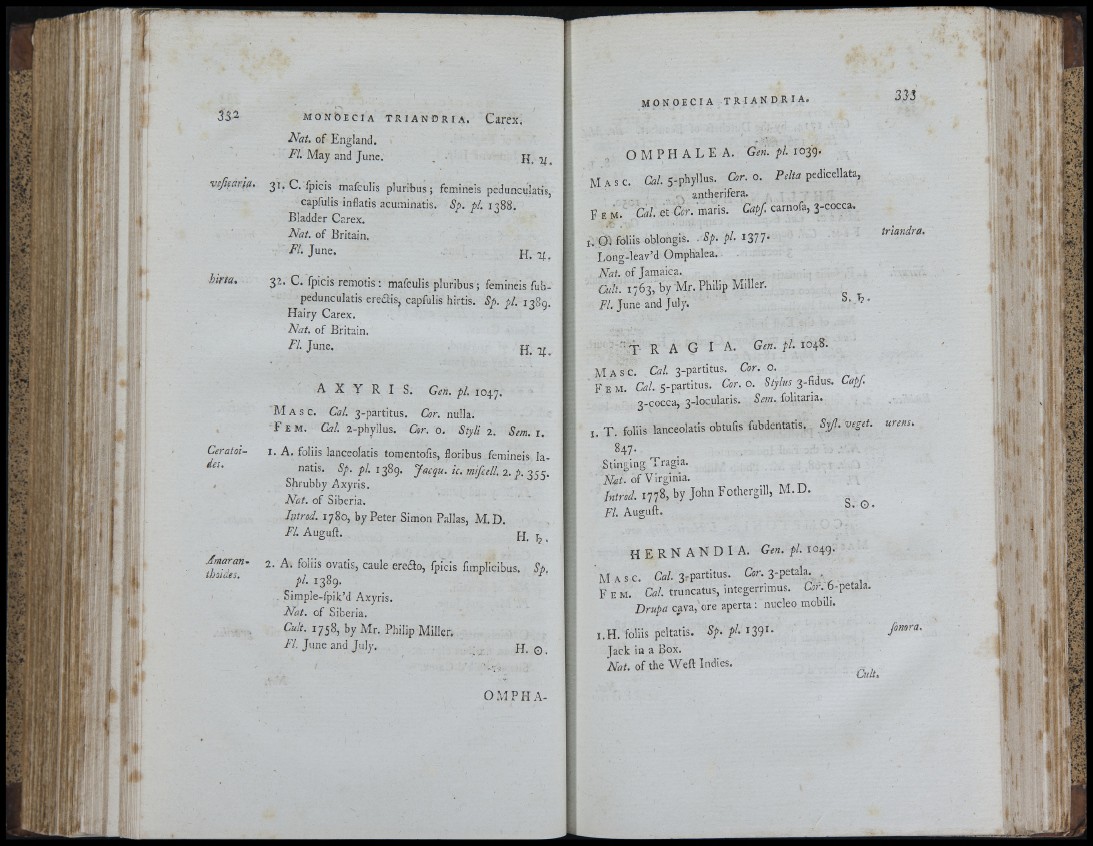 332 MONOECIA TRIANDRIA. Carex.
Nat. of England.
Fl. May and June. H. ♃.
vesicaria. 31. C. ſpicis maſculis pluribus; femineis pedunculatis,
capſulis inflatis acuminatis. Sp. pl. 1388.
Bladder Carex.
Nat. of Britain.
Fl. June. H. ♃.
hirta. 32. C. ſpicis remotis: maſculis pluribus; femineis ſub-
pedunculatis erectis, capſulis hirtis. Sp. pl. 1389.
Hairy Carex.
Nat. of Britain.
Fl. June. H. ♃.
AXYRIS. Gen. pl. 1047.
MASC. Cal. 3-partitus. Cor. nulla.
FEM. Cal. 2-phyllus. Cor. 0. Styli 2. Sem. 1.
Ceratoi- 1. A. foliis lanceolatis tomentoſis, floribus femineis la-
des. natis. Sp. pl. 1389. Jacqu. ic. miſcell. 2. p. 355.
Shrubby Axyris.
Nat. of Siberia.
Introd. 1780, by Peter Simon Pallas, M.D.
Fl. Auguſt. H. ♄.
Amaran- 2. A. foliis ovatis, caule erecto, ſpicis ſimplicibus. Sp.
thoides. pl. 1389.
Simple-ſpik'd Axyris.
Nat. of Siberia.
Cult. 1758, by Mr. Philip Miller.
Fl. June and July. H. ☉.
OMPHA-
MONOECIA TRIANDRIA. 333
OMPHALEA. Gen. pl. 1039.
MASC. Cal. 5-phyllus. Cor. 0. Pelta pedicellata,
antherifera.
FEM. Cal. et Cor. maris. Capſ. carnoſa, 3-cocca.
1. O. foliis oblongis. Sp. pl. 1377. triandra.
Long-leav'd Omphalea.
Nat. of Jamaica.
Cult. 1763, by Mr. Philip Miller.
Fl. June and July. S. ♄.
TRAGIA. Gen. pl. 1048.
MASC. Cal. 3-partitus. Cor. 0.
FEM. Cal. 5-partitus. Cor. 0. Stylus 3-fidus. Capſ.
3-cocca, 3-locularis. Sem. ſolitaria.
1. T. foliis lanceolatis obtuſis ſubdentatis. Syſt. veget. urens.
847.
Stinging Tragia.
Nat. of Virginia.
Introd. 1778, by John Fothergill, M.D.
Fl. Auguſt. S. ☉.
HERNANDIA. Gen. pl. 1049.
MASC. Cal. 3-partitus. Cor. 3-petala.
FEM. Cal. truncatus, integerrimus. Cor. 6-petala.
Drupa cava, ore aperta: nucleo mobili.
1. H. foliis peltatis. Sp. pl. 1391. ſonora.
Jack in a Box.
Nat. of the Weſt Indies.
Cult.